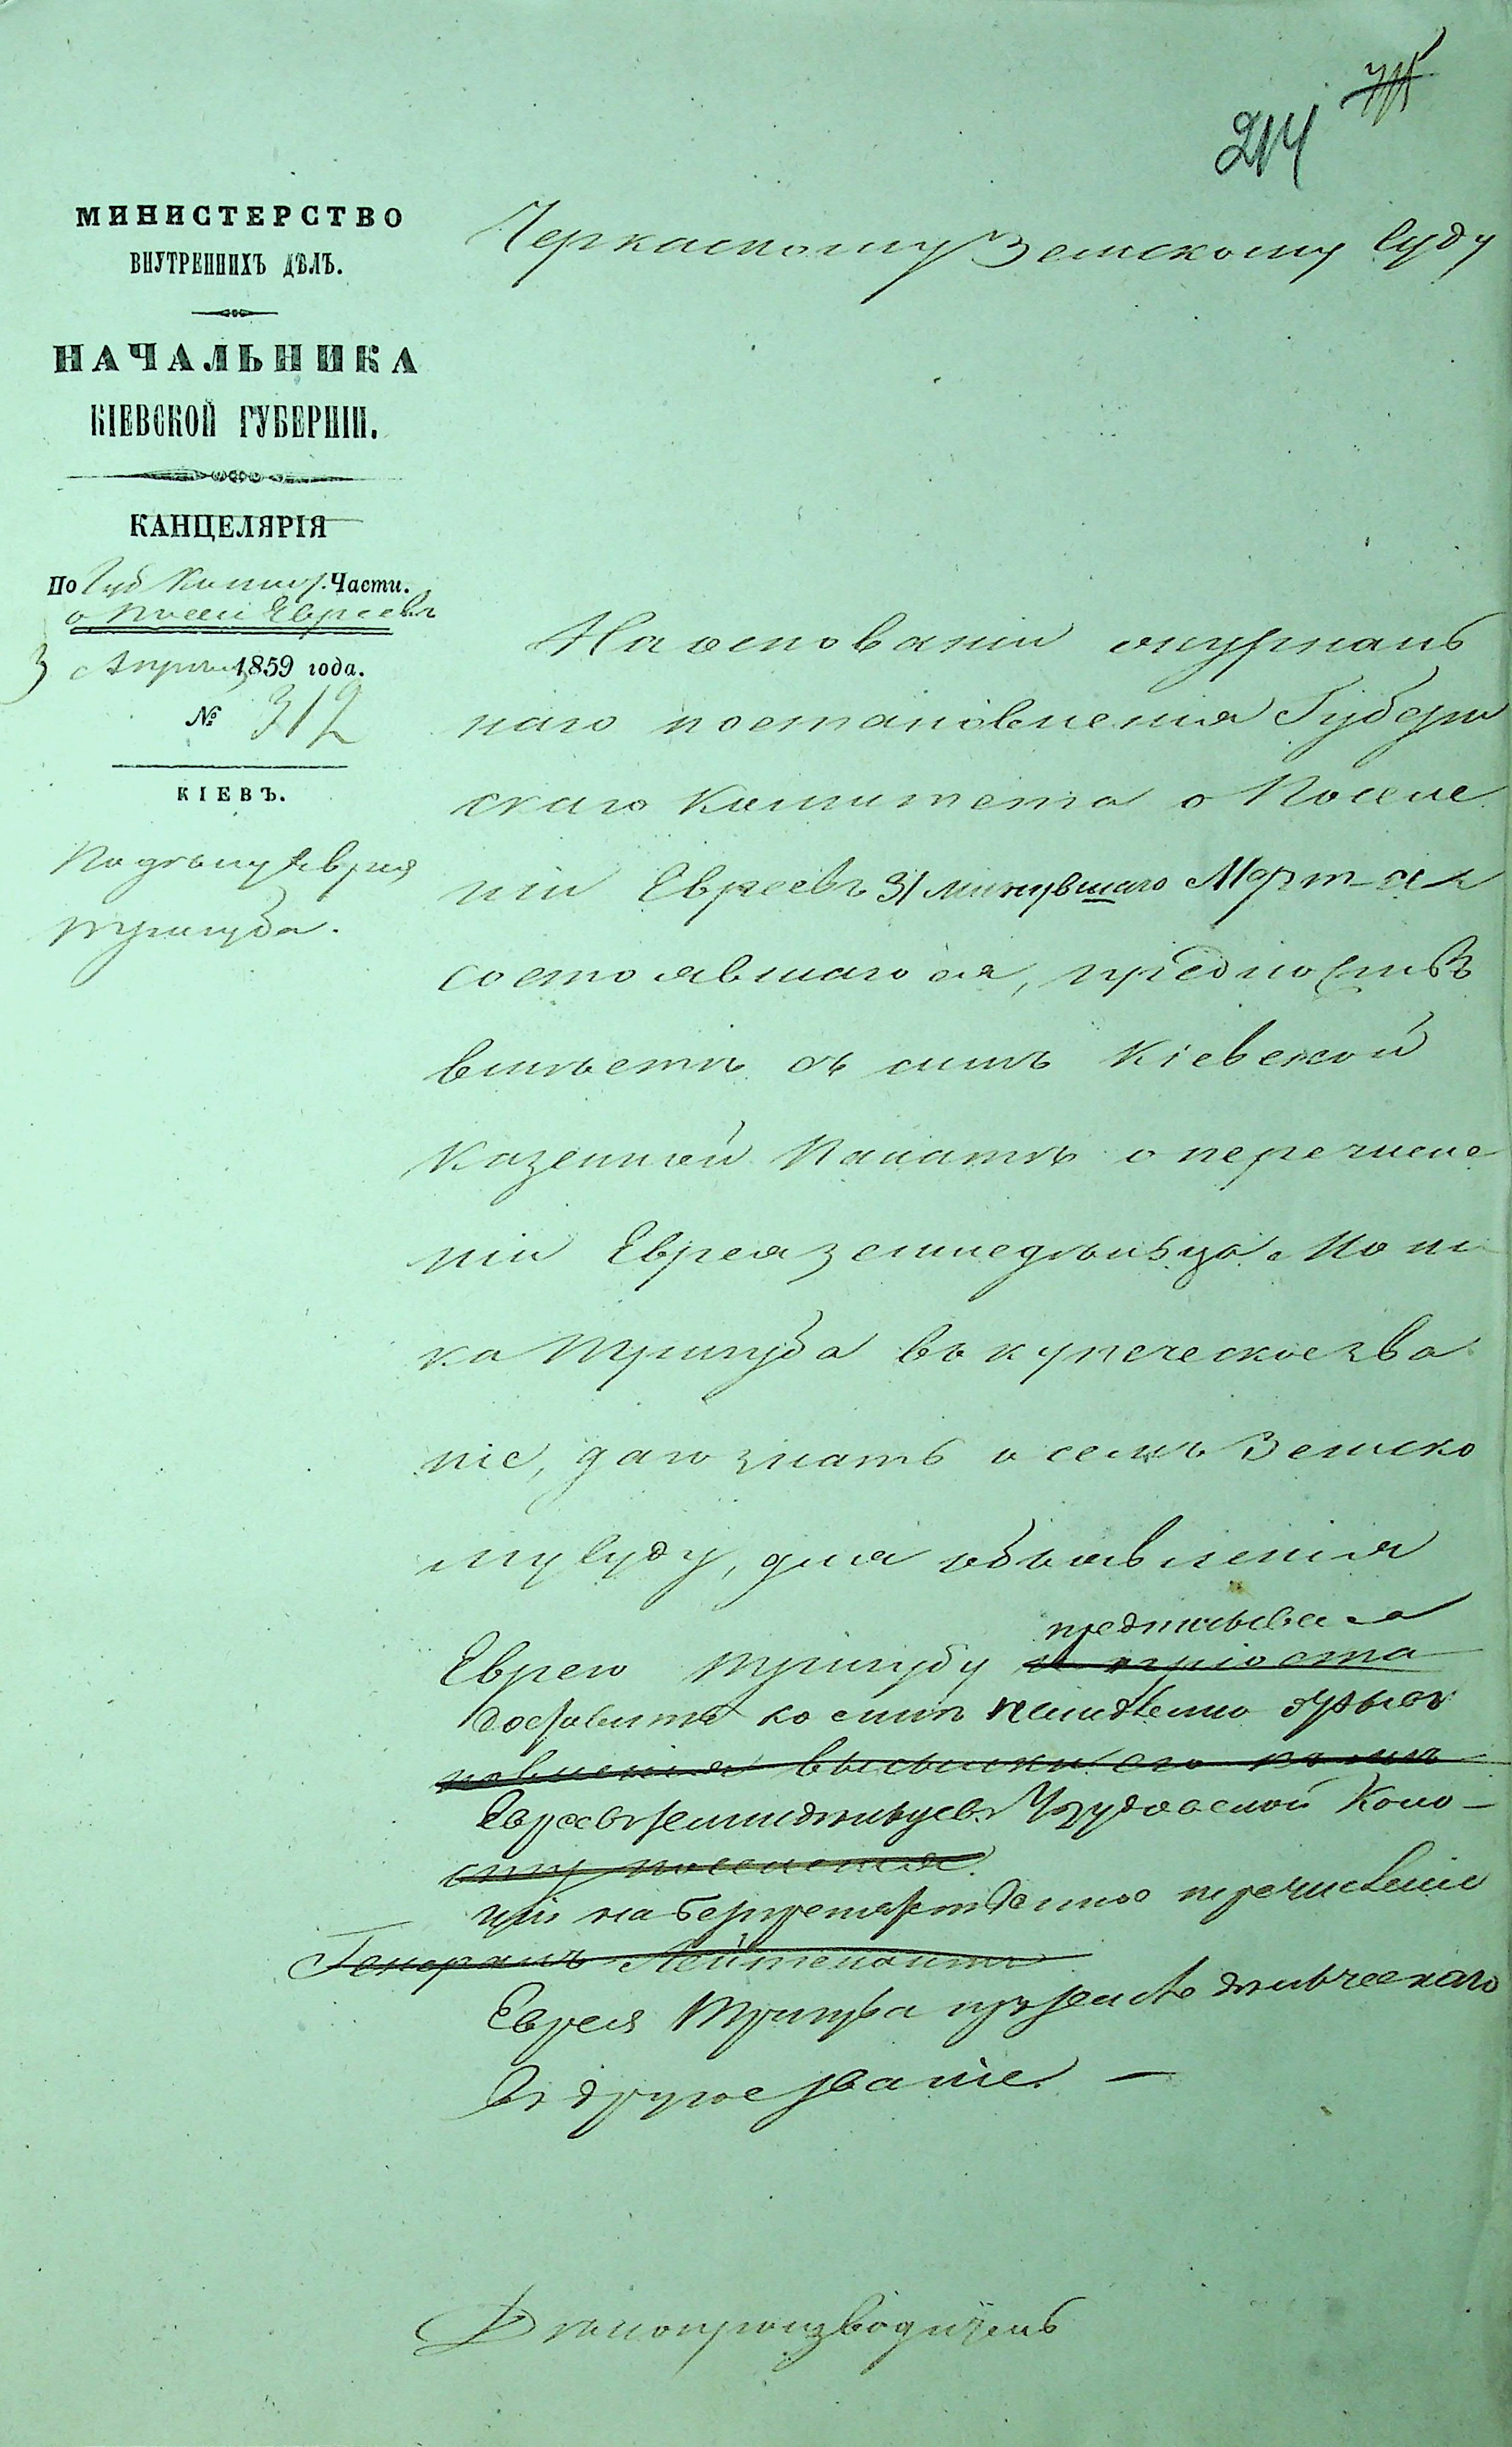 214
МИНИСТЕРСТВО
ВНУТРЕННИХЪ ДѢЛЪ.
НАЧАЛЬНИКА
КІЕВСКОЙ ГУБЕРНІИ.
КАНЦЕЛЯРІЯ
По Губ Комит. Части.
о посел Евреевъ
3 Апрѣля 1859 года.
№ 312
КІЕВЪ.
По дѣлу Еврея
Трилуба.
Черкаскому Земскому Суду
На основаніи журналь
наго постановленія Губерн
скаго Комитета о Поселе
ніи Евреевъ 31 минувшаго Марта
состоявшагося, предложивъ
вмѣстѣ съ симъ Кіевской
Казенной Палатѣ о перечисле
ніи Еврея земледѣльца
ка Трилуба въ купеческое зва
ніе, даю знать о семъ Земско
му Суду, для объявленія
предписывая
Еврею Трилубу и пріоста
доставить ко мнѣ немедленно
новленія высылки его на мѣ
Евреевъ земледѣльцевъ Коло-
сту поселенія.
ніи на безпрепятственное перечисленіе
Генералъ Лейтенантъ
Еврея Трилуба изъ земледѣльческаго
въ другое званіе. —
Дѣлопроизводитель